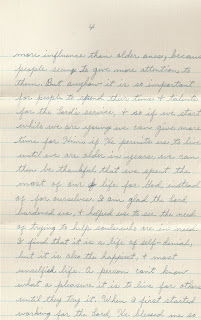 4
more influence than older ones, because
people seem to give more attention to
them. But anyhow it is so important
for people to spend their time & talents
for the Lord's service, & so if we start
while we are young we can give more
time for Him if He permits us to live
until we are older in years we can
then be thankful that we spent the
most of our life for God instead
of for ourselves. I am glad the Lord
burdened us, & helped us to see the need
of trying to help souls who are in need.
I find that it is a life of self-denial,
but it is also the happiest, & most
unselfish life. A person can't know
what a pleasure it is to live for others
until they try it. When I first started
working for the Lord. He blessed me so